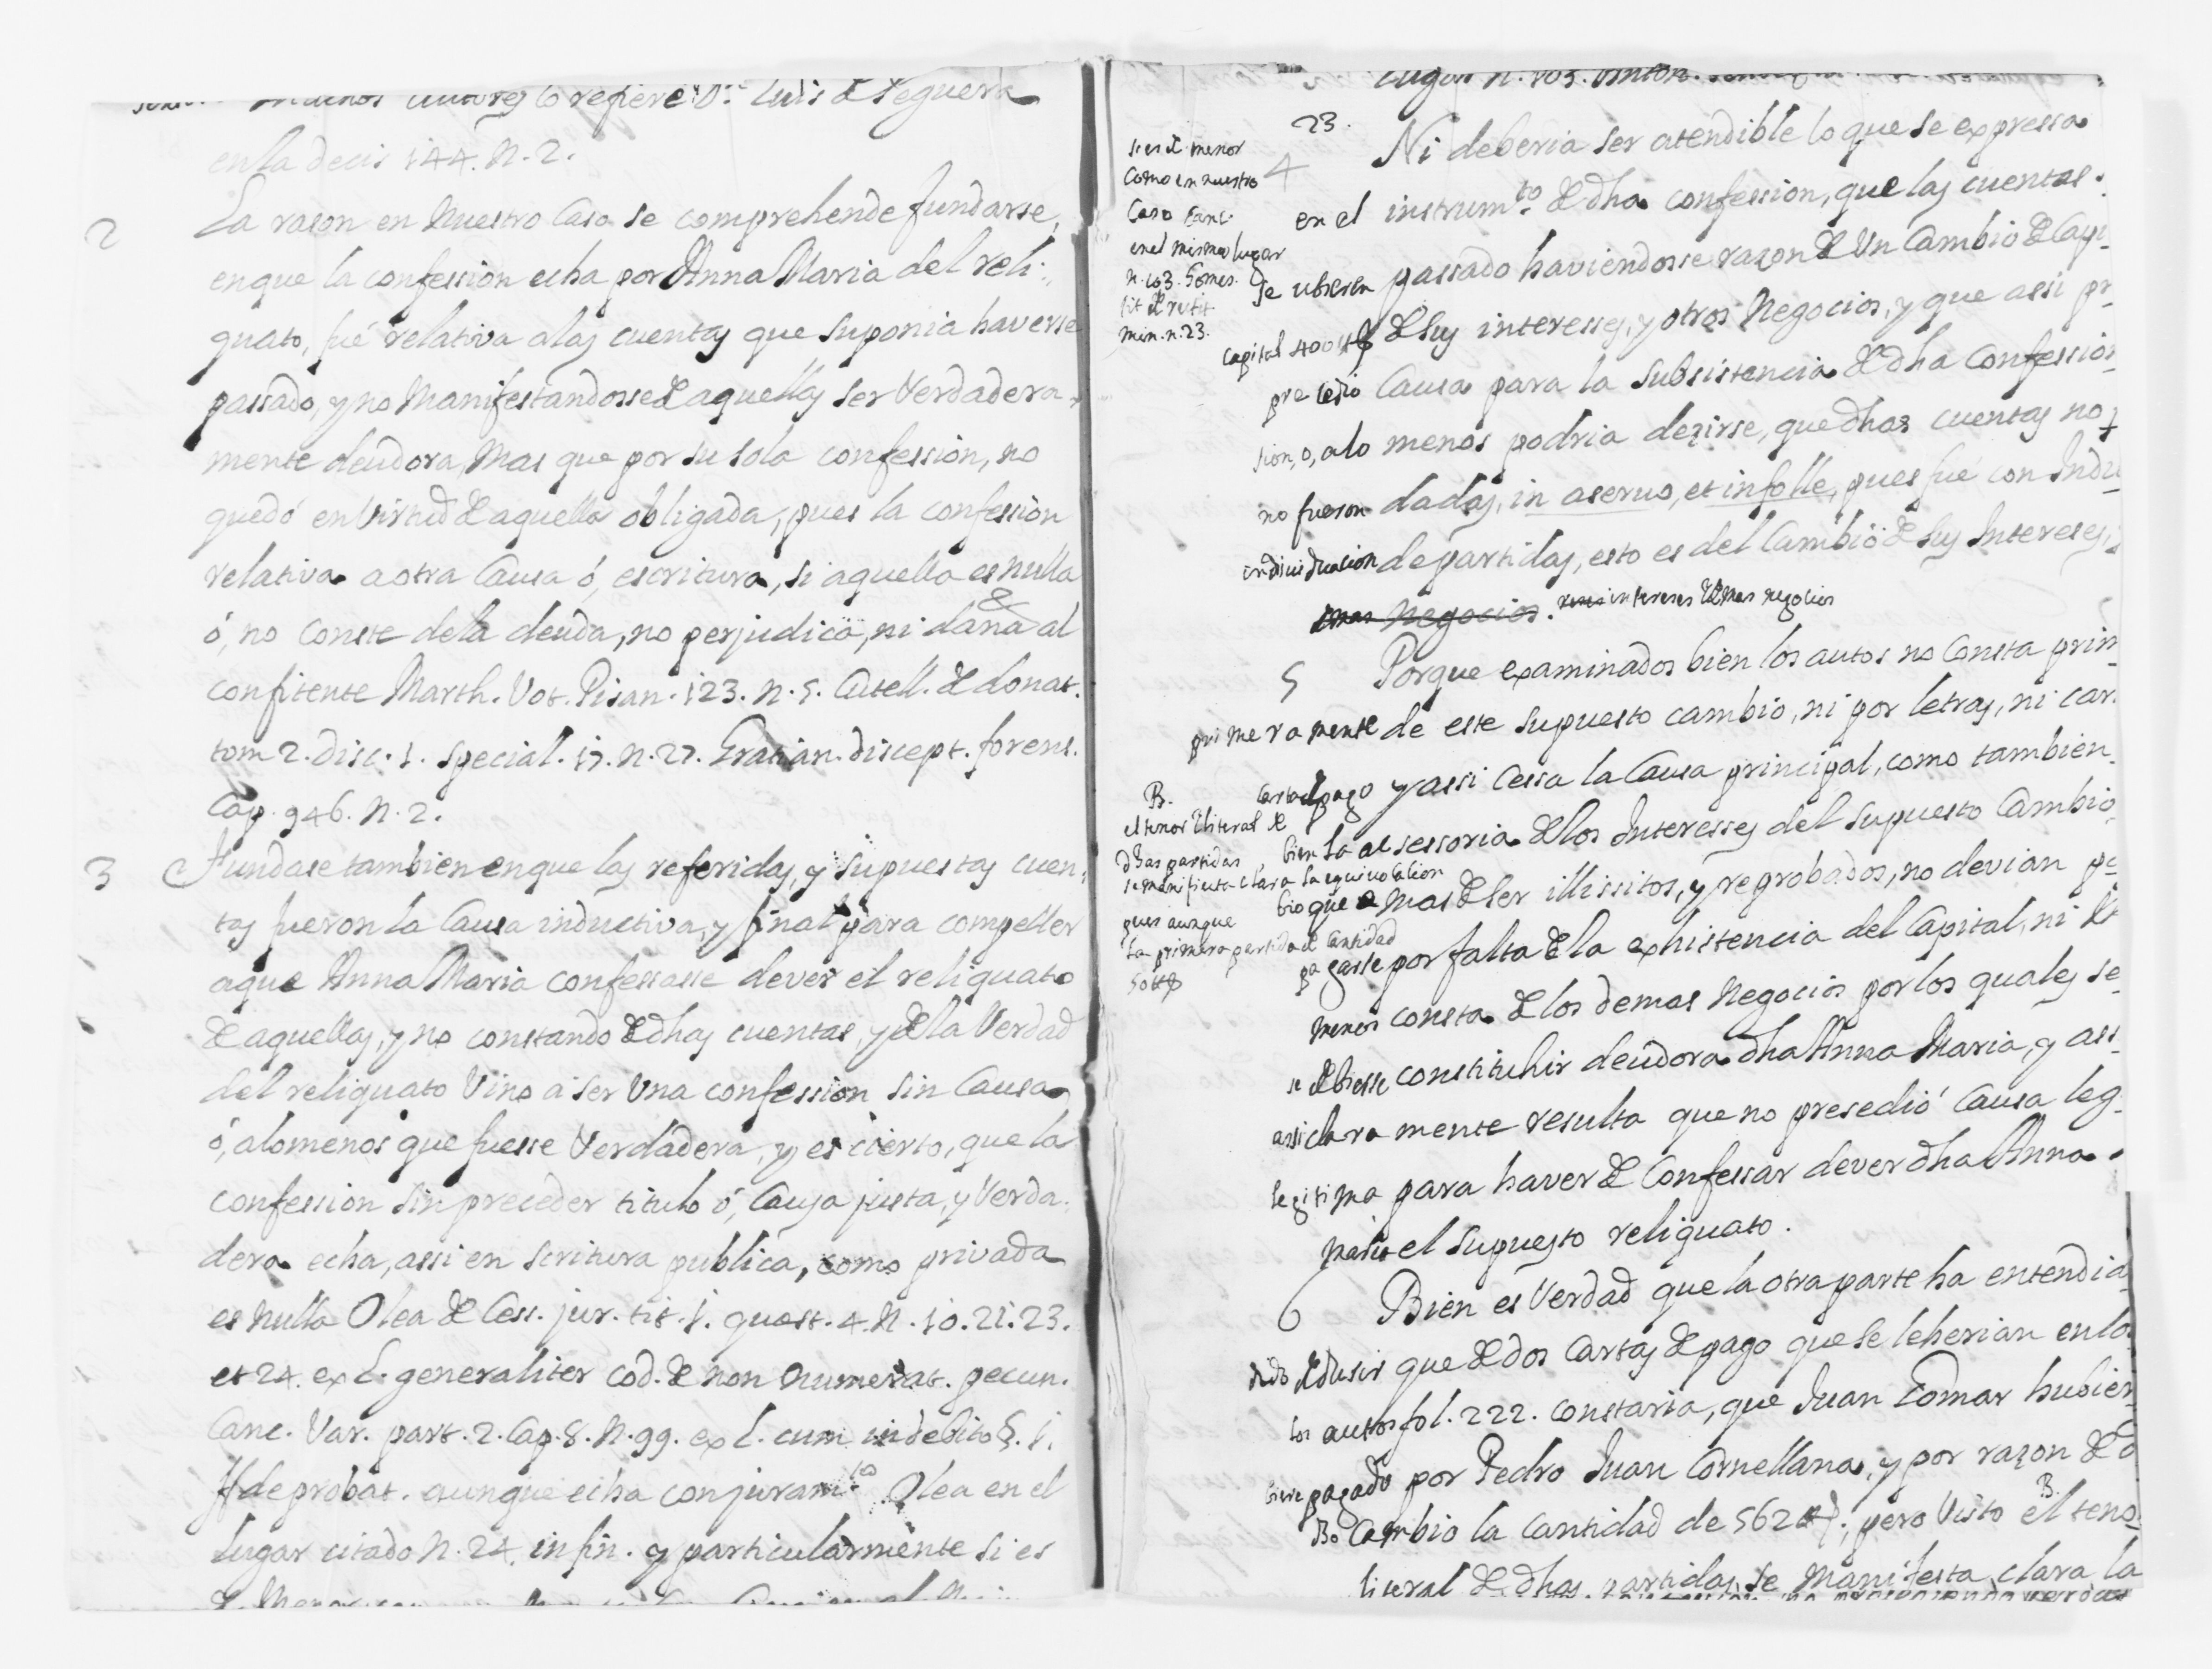 muchos autores lo refiere Dn. Luis de Peguera
en la decis 144. N. 2.
2 La rason en Nuestro Caso se comprehende fundarse,
en que la confession echa por Anna Maria del reli-
quato, fué relativa a las cuentas que suponia haverse
passado, y no Manifestandosse de aquellas ser Verdadera-
mente deudora, Mas que por su sola confession, no
quedó en Virtud de aquella obligada, pues la confession
relativa a otra Causa ó, escritura, si aquella es nulla
ó, no Conste dela deuda, no perjudica, ni daña al
confitente Marth. Vot. Pisan. 123. N. 5. Cutell. de donat.
tom 2. disc. 1. special. 17. N. 27. Gratian. discept. forens.
Cap. 946. N. 2.
3 Fundase tambien en que las referidas, y supuestas cuen-
tas fueron la Causa inductiva, y final para compeller
a que Anna Maria confessasse dever el reliquato
de aquellas, y no constando de dhas cuentas, y de la Verdad
del reliquato Vino a ser Una confession sin Causa
ó, alomenos que fuesse Verdadera, y es cierto, que la
confession sin preceder titulo ó, Causa justa, y Verda-
dera echa, assi en scritura publica, como privada
es nulla Olea de Cess. jur. tit. 1. quest. 4. N. 10. 21. 23.
et 24. ex L. generaliter Cod. de non numerat. pecun.
Canc. Var. part. 2. Cap. 8. N. 99. ex L. cum indebito §. 1.
ff de probat. aunque echa con juramto. Olea en el
lugar citado N. 24. in fin. y particularmente si es
lugar N. 103.
23.
si es de menor
Como en nuestro
Caso Canc.
en el mismo lugar
n. 103. Gomes.
tit de restit
min. n. 23.
4 Ni deberia ser atendible lo que se expressa
en el instrumto. de dha confession, que las cuentas
se ubiesen passado haviendosse razon de Un Cambio de Capi-
capital 400 ℔ de sus interesses, y otros Negocios, y que assi pr
pre Causa para la subsistencia de dha Confession
sion, o, alo menos podria dezirse, que dhas cuentas no
no fueron dadas, in aseruo, et infolle, pues fué con Indi
individuacion de partidas, esto es del Cambio de sus Intereses,
mas Negocios. intereses demas negocios
5 Porque examinados bien los autos no Consta prim
primeramente de este supuesto cambio, ni por letras, ni car
carta de pago y assi Cessa la Causa principal, como tambien
bien la acsessoria de los Interesses del supuesto Cambio
bio que a mas de ser illissitos, y reprobados, no devian pa
pagarse por falta de la exhistencia del Capital, ni de
menos consta de los demas Negocios por los quales se
se debiesse constituhir deudora dha Anna Maria, y ass
assi claramente resulta que no presedió Causa leg
legitima para haver de Confessar dever dha Anna
Maria el supuesto reliquato.
B.
el tenor literal de
dhas partidas,
se manifiesta clara la equivocacion
pues aunque
la primera partida de Cantidad
50 ℔
6 Bien es Verdad que la otra parte ha entendi
dido dedusir que de dos Cartas de pago que se leherian en lo
los autos fol. 222. constaria, que Juan Tomar hubier
biere pagado por Pedro Juan Cornellana, y por razon de d
Cambio la Cantidad de 562 ℔. pero Visto el teno B.
literal de dhas partidas, se Manifesta clara la